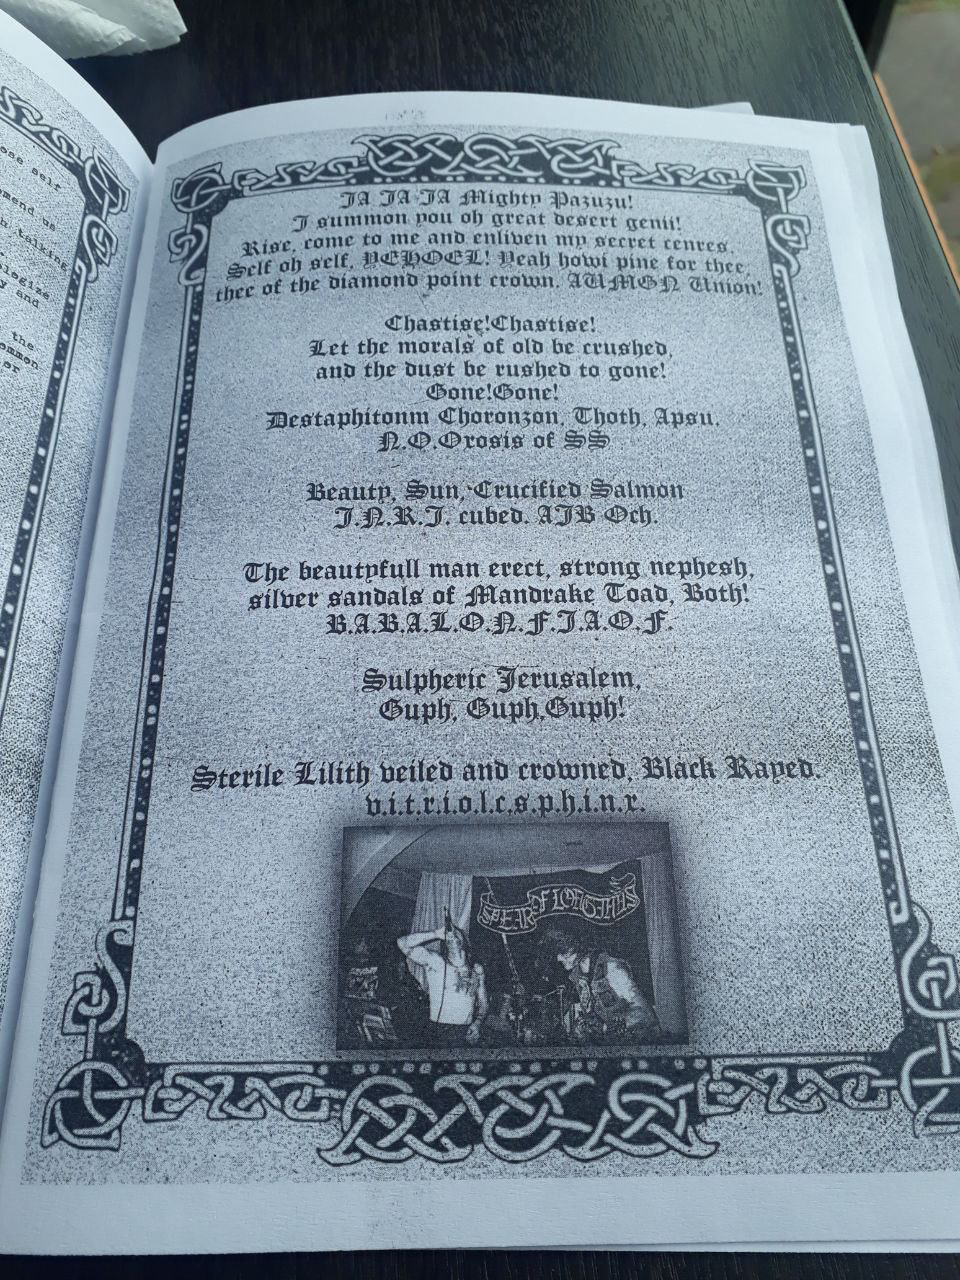 ose self
mmend us
h talking
legize
y and
the
ommon
er
IA IA IA Mighty Pazuzu!
I summon you oh great desert genii!
Rise, come to me and enliven my secret centres,
Self oh self, YEHOEL! Yeah howi pine for thee,
thee of the diamond point crown. AUMGN Union!
Chastise!Chastise!
Let the morals of old be crushed,
and the dust be rushed to gone!
Gone!Gone!
Destaphitonm Choronzon, Thoth, Apsu.
N.O.Oxosis of SS
Beauty, Sun, Crucified Salmon
I.N.R.I. cubed. AIB Och.
The beautyfull man erect, strong nephesh,
silver sandals of Mandrake Toad, Both!
B.A.B.A.L.O.N.F.I.A.O.F.
Sulpheric Jerusalem,
Guph, Guph,Guph!
Sterile Lilith veiled and crowned, Black Raped.
v.i.t.r.i.o.l.c.s.p.h.i.n.x.
SPEAR OF LONGINUS